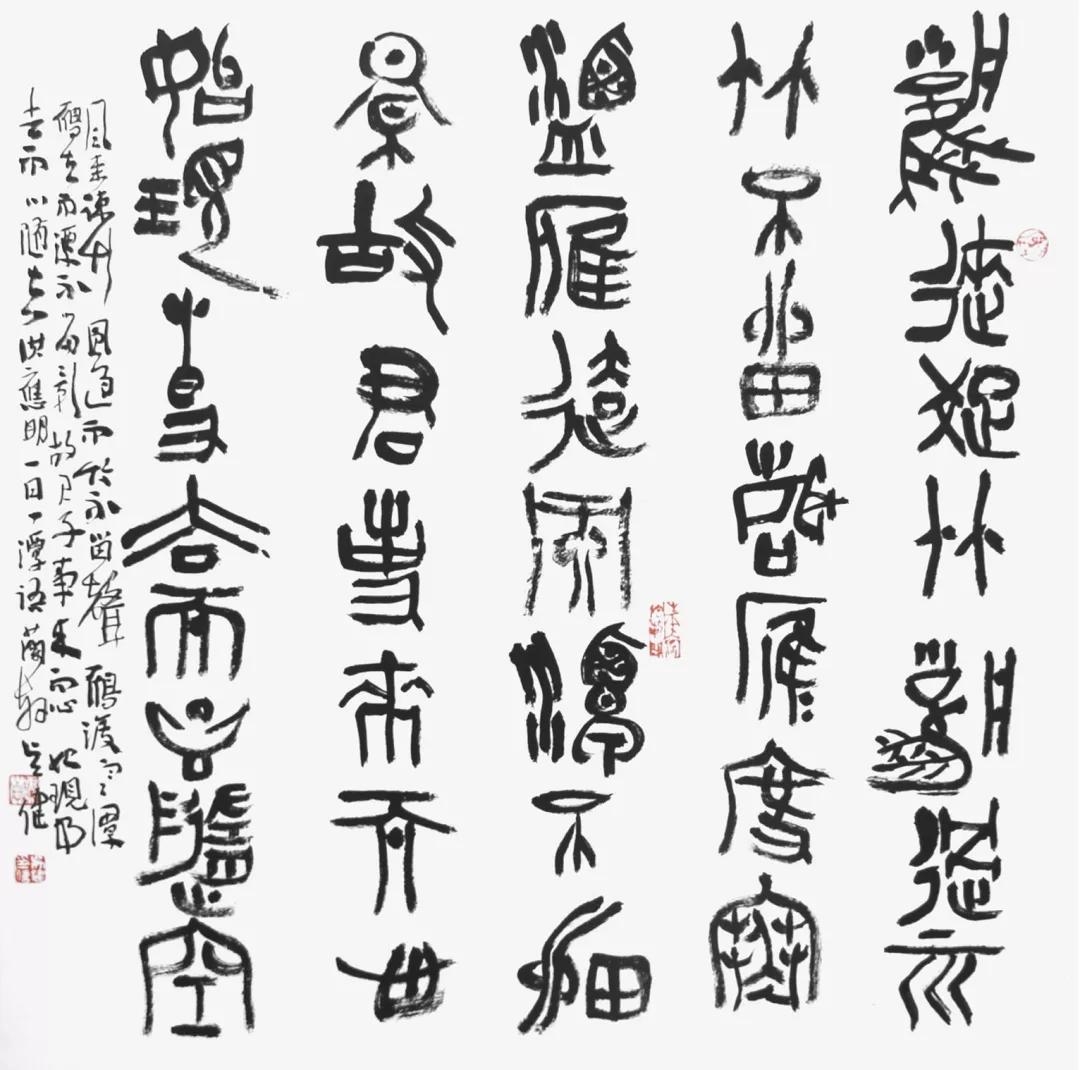 風來疏竹風過而
竹不留聲雁度寒
潭雁去而潭不留
景故君事來而心
始現事去而心隨空
風來疎竹風過而竹不留聲鴈渡寒潭
鴈去而潭不留影故君子事來而心始現事
去而心随空洪應明一日一潭語